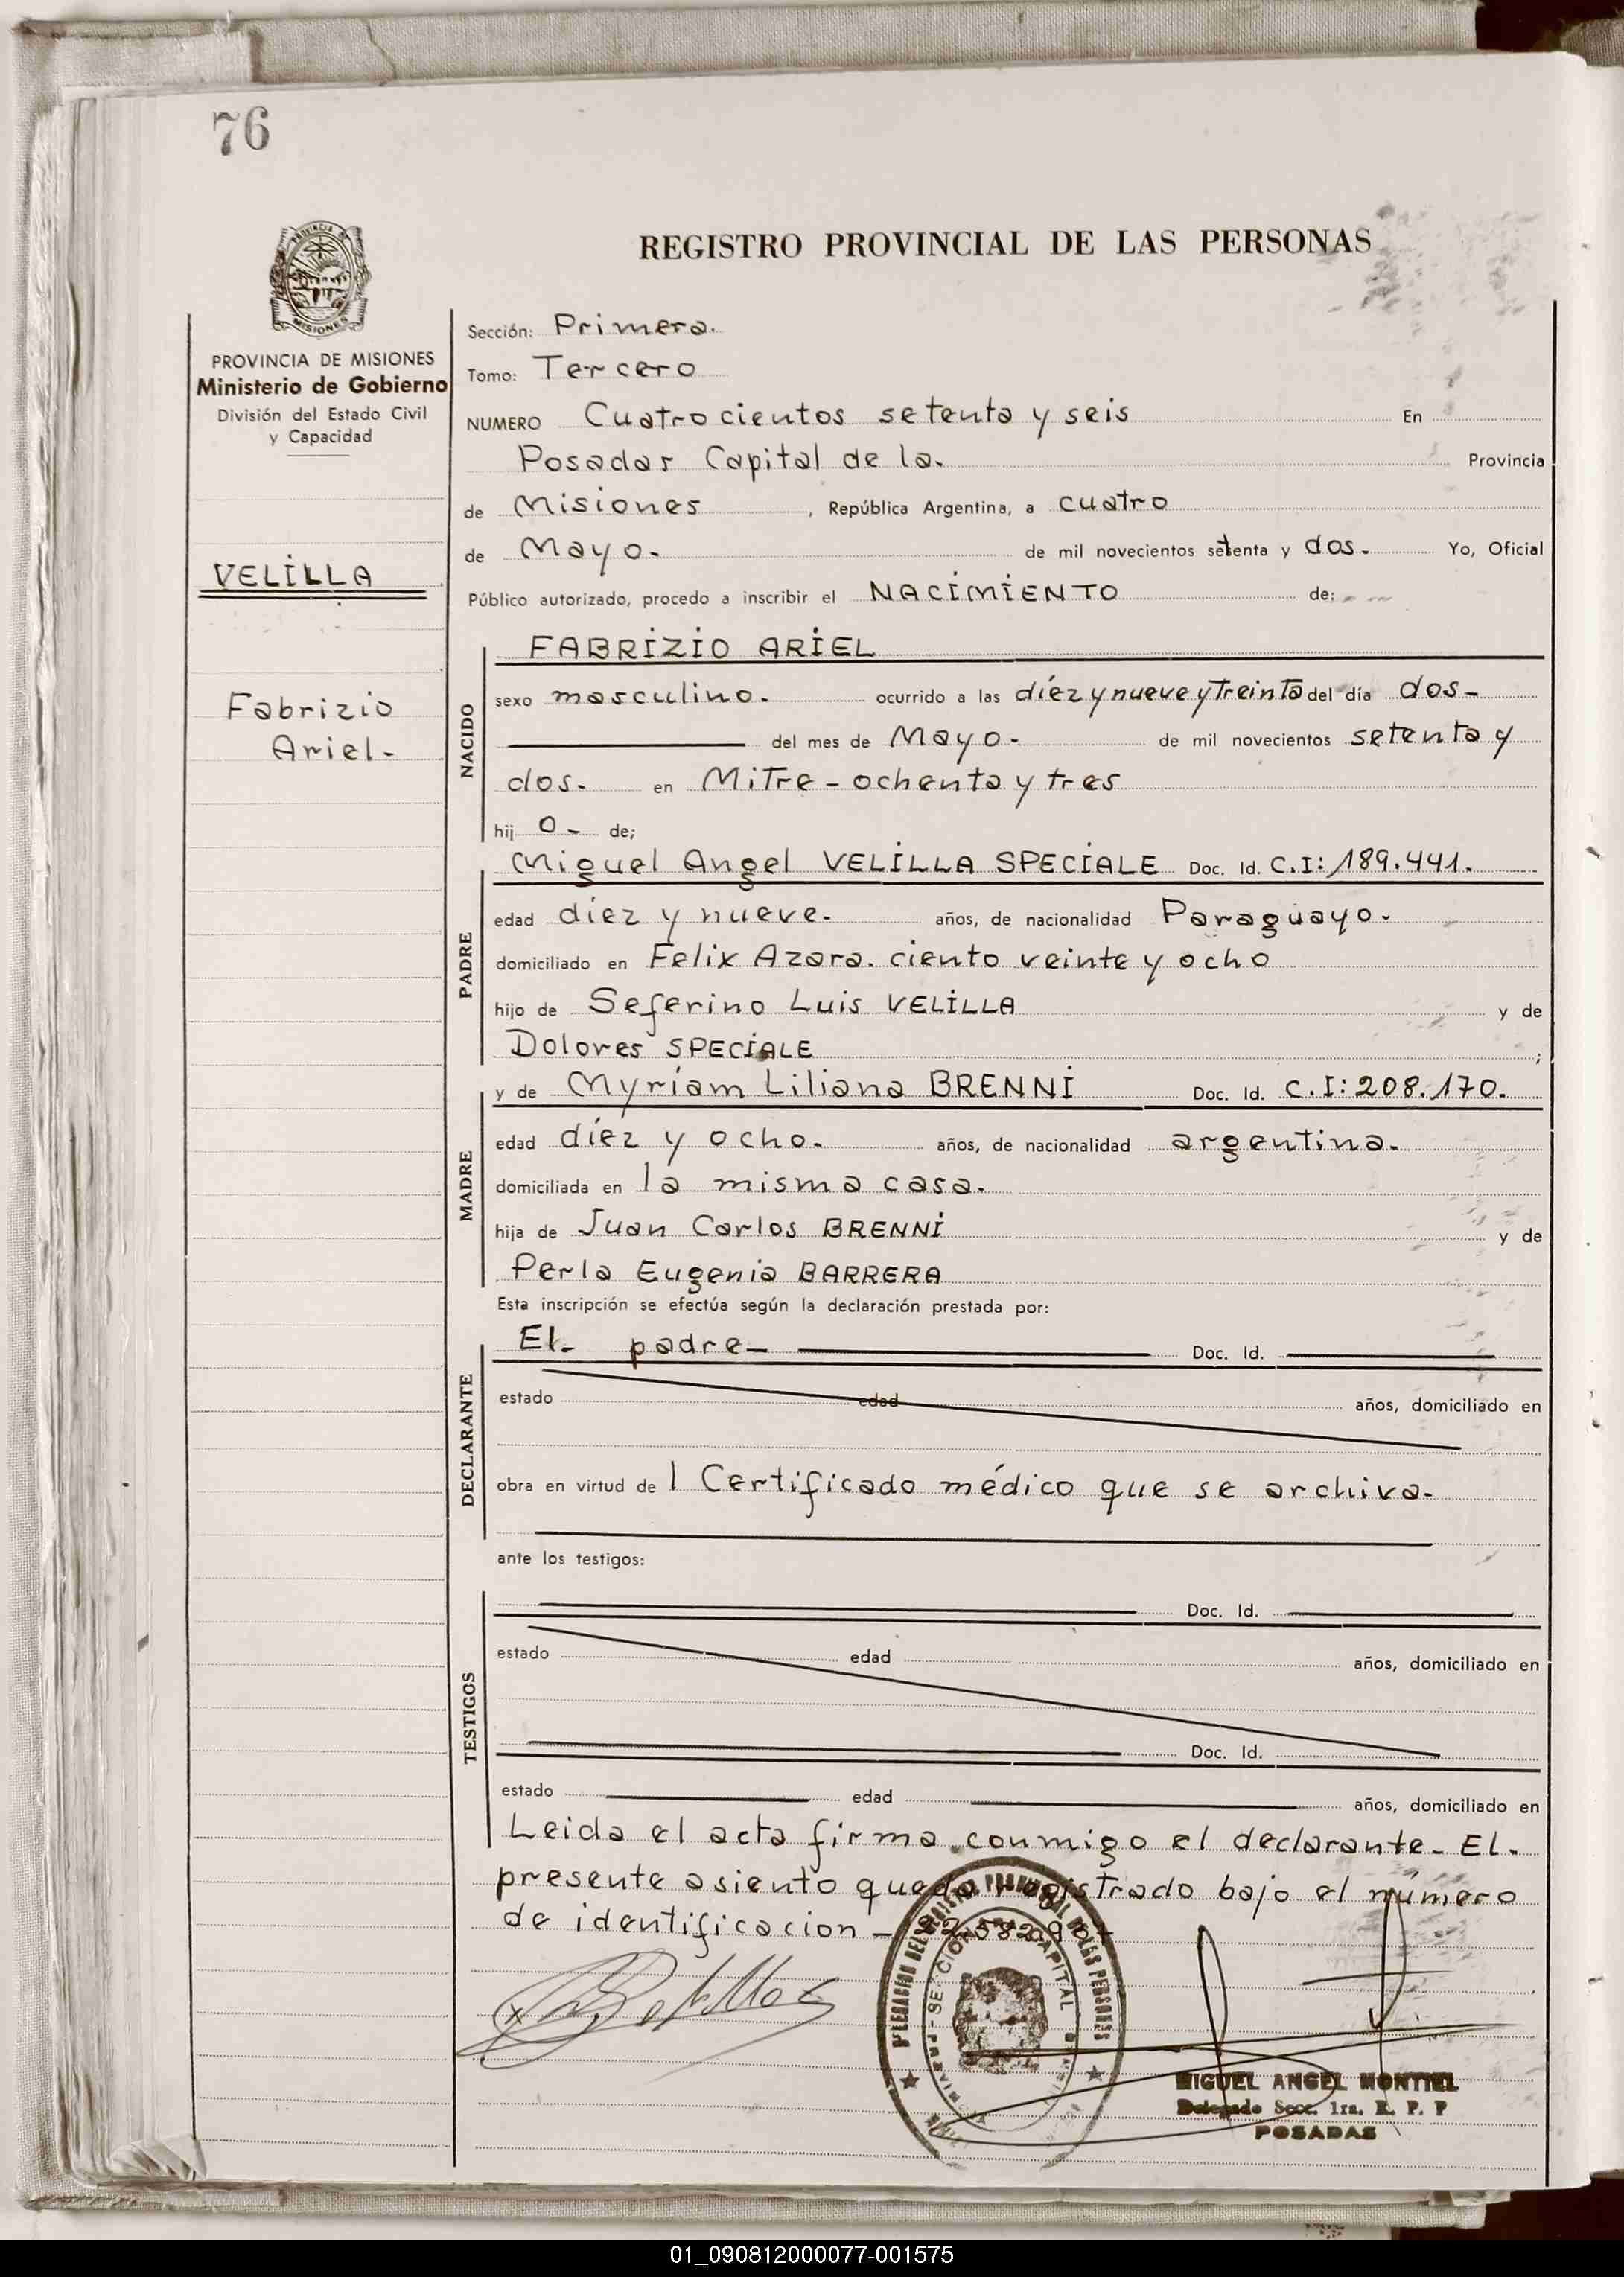 76
REGISTRO PROVINCIAL DE LAS PERSONAS
PROVINCIA DE MISIONES
Ministerio de Gobierno
División del Estado Civil
y Capacidad
VELILLA
Fabrizio
Ariel-
Sección: Primera.
Tomo: Tercero
NUMERO Cuatrocientos setenta y seis En
Posadas Capital de la. Provincia
de Misiones, República Argentina, a cuatro
de Mayo. de mil novecientos setenta y dos. Yo, Oficial
Público autorizado, procedo a inscribir el NACIMIENTO de;
NACIDO
FABRIZIO ARIEL
sexo masculino. ocurrido a las diez y nueve y treinta del día dos-
del mes de Mayo- de mil novecientos setenta y
dos. en Mitre - ochenta y tres
hij o- de;
PADRE
Miguel Angel VELILLA SPECIALE Doc. Id. C.I: 189.441.
edad diez y nueve. años, de nacionalidad Paraguayo.
domiciliado en Felix Azara. ciento veinte y ocho
hijo de Seferino Luis VELILLA y de
Dolores SPECIALE ;
MADRE
y de Myriam Liliana BRENNI Doc. Id. C.I: 208.170.
edad diez y ocho. años, de nacionalidad argentina.
domiciliada en la misma casa.
hija de Juan Carlos BRENNI y de
Perla Eugenia BARRERA
Esta inscripción se efectúa según la declaración prestada por:
DECLARANTE
El- padre- Doc. Id.
estado edad años, domiciliado en
obra en virtud de l Certificado médico que se archiva.
ante los testigos:
TESTIGOS
Doc. Id.
estado edad años, domiciliado en
Doc. Id.
estado edad años, domiciliado en
Leida el acta firma conmigo el declarante- El-
presente asiento queda registrado bajo el número
de identificacion -
CAPITAL
MIGUEL ANGEL MONTIEL
Delegado Secc. 1ra. R. P. P
POSADAS
01_090812000077-001575